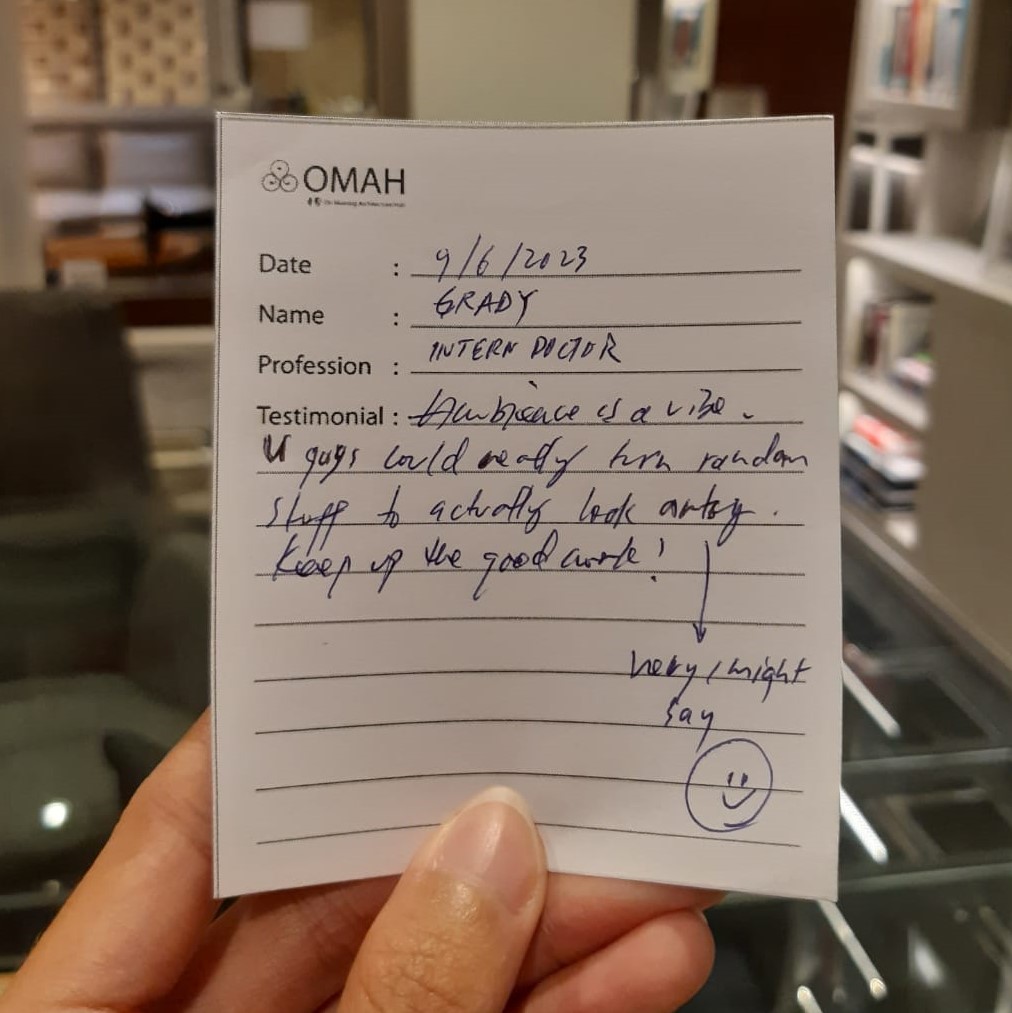 OMAH
Date : 9/6/2023
Name : GRADY
Profession : INTERN DOCTOR
Testimonial : Ambience is a vibe.
U guys could really turn random
stuff to actually look artsy.
Keep up the good work!
very, I might
say